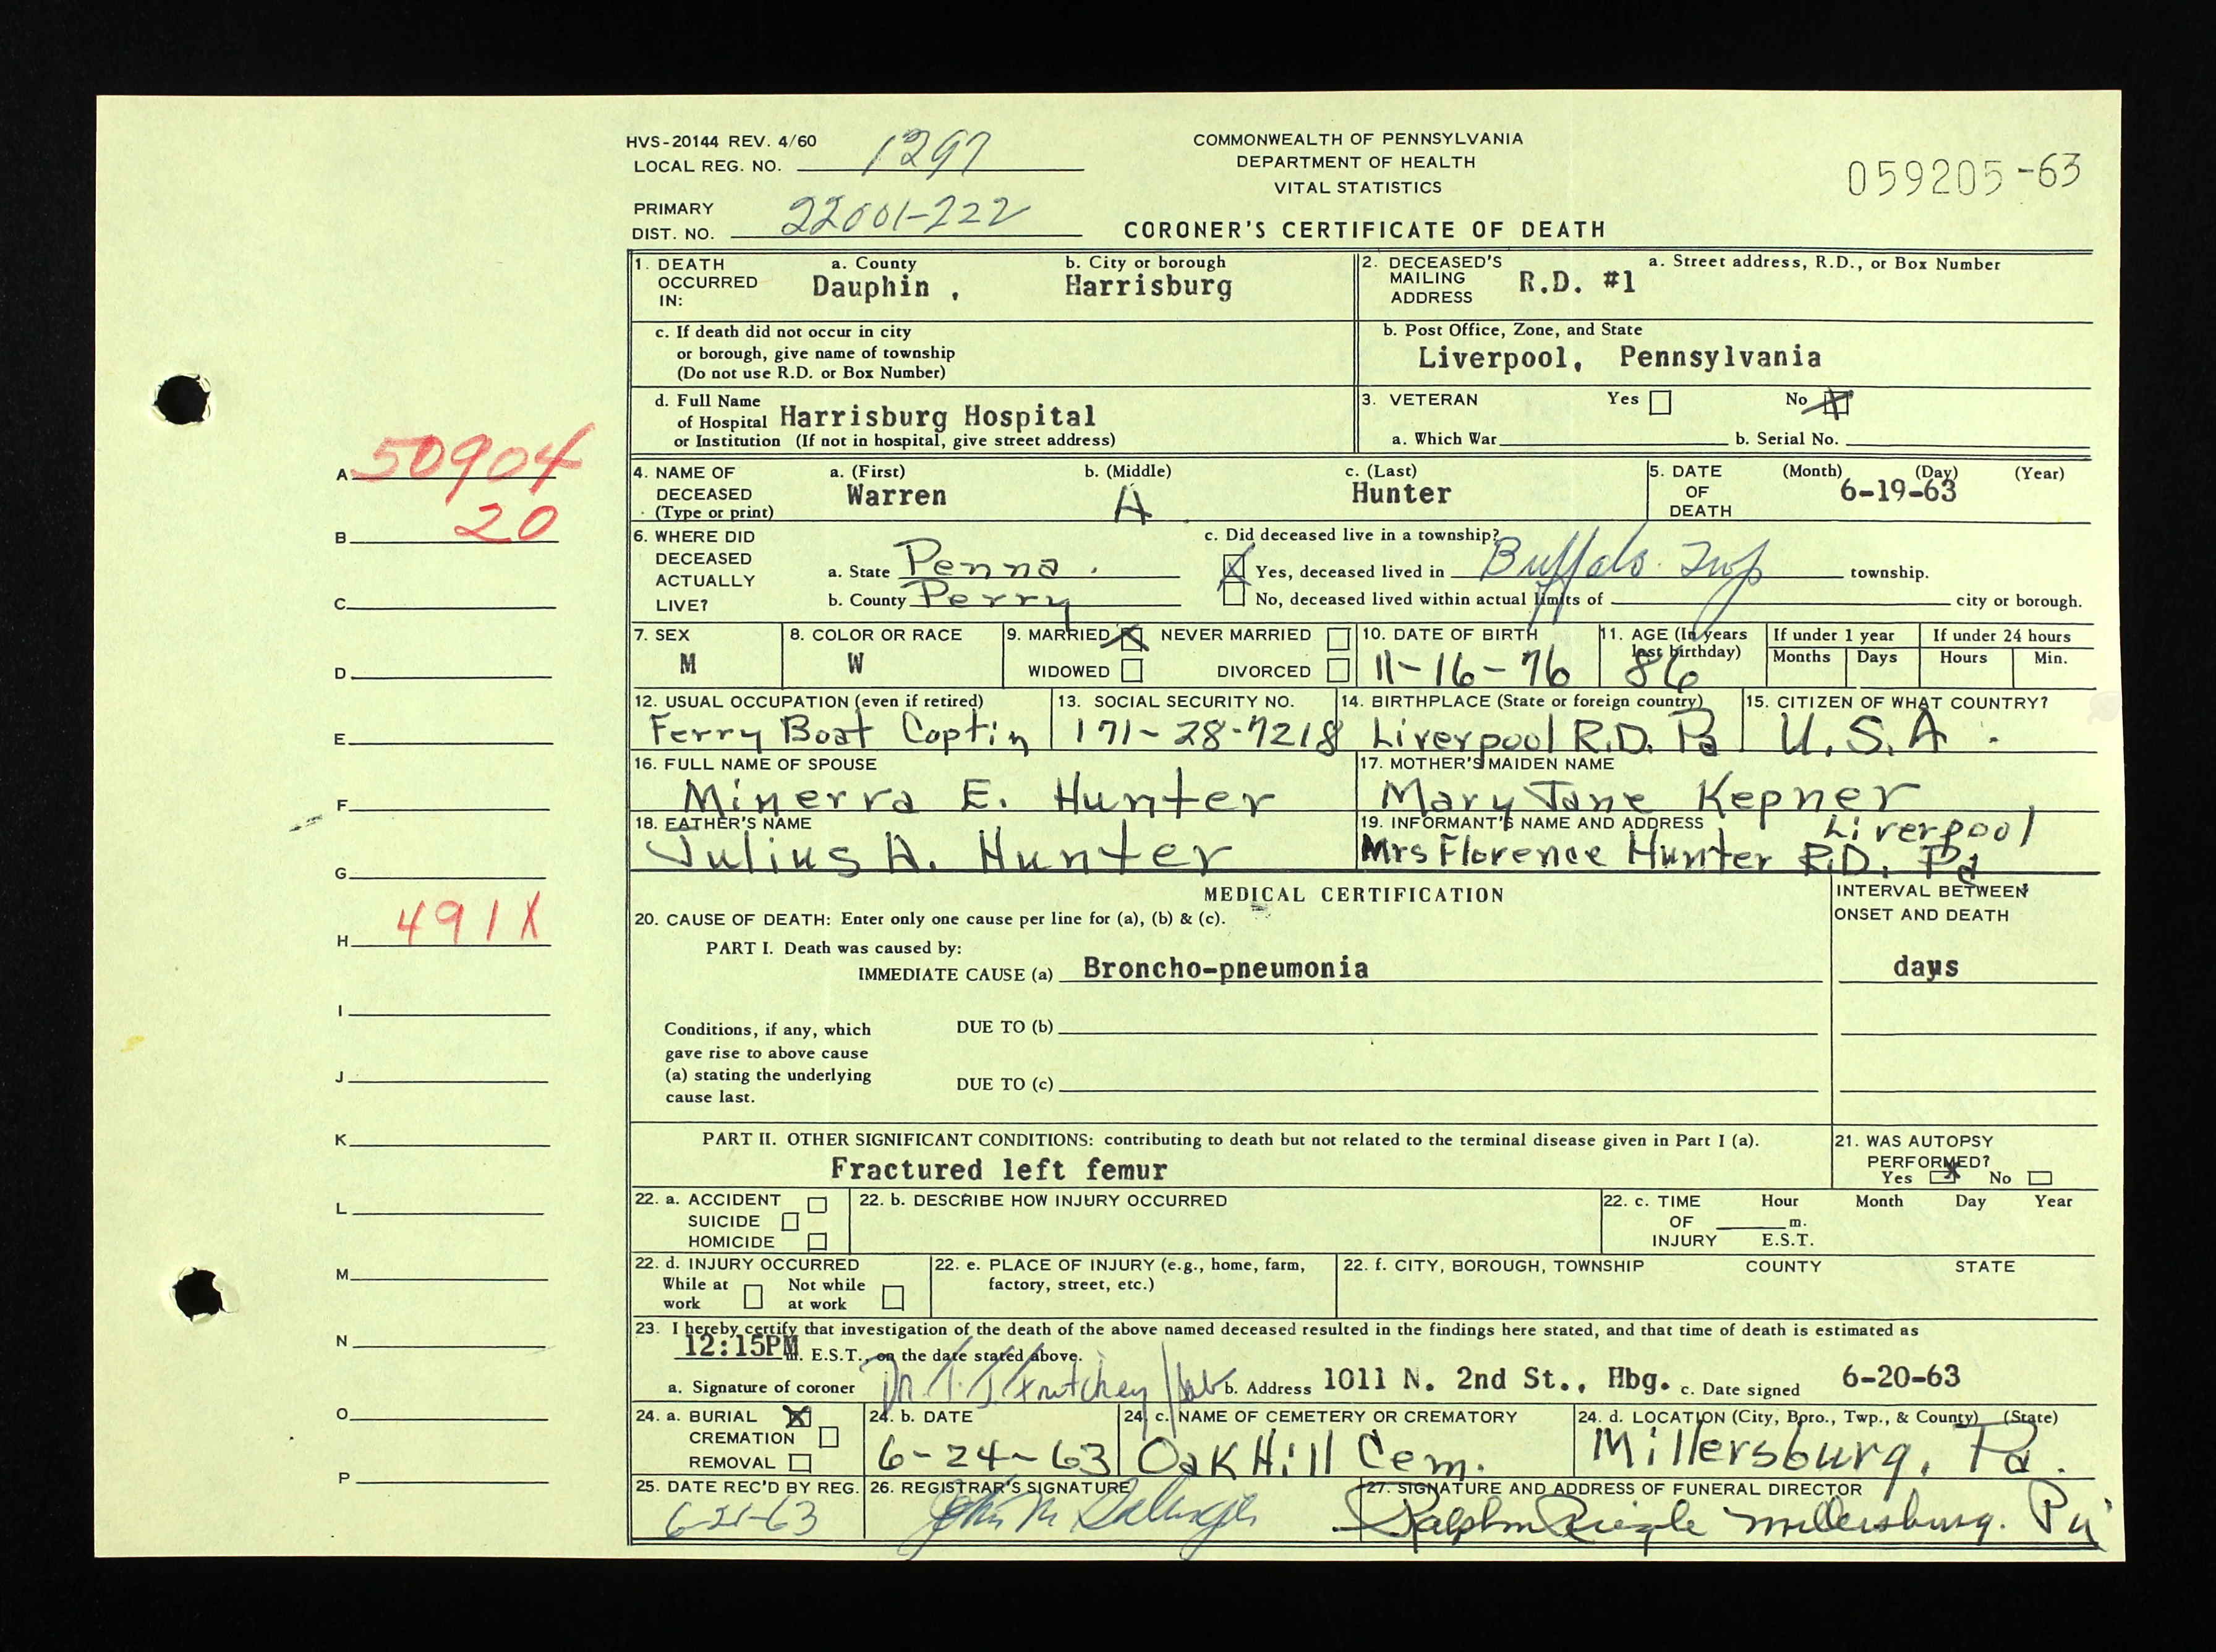 HVS-20144 REV. 4/60
LOCAL REG. NO. 1297
PRIMARY
DIST. NO. 22001-222
COMMONWEALTH OF PENNSYLVANIA
DEPARTMENT OF HEALTH
VITAL STATISTICS
CORONER'S CERTIFICATE OF DEATH
059205-63
1. DEATH OCCURRED IN:
a. County
Dauphin .
b. City or borough
Harrisburg
2. DECEASED'S MAILING ADDRESS
a. Street address, R.D., or Box Number
R.D. #1
c. If death did not occur in city
or borough, give name of township
(Do not use R.D. or Box Number)
b. Post Office, Zone, and State
Liverpool, Pennsylvania
d. Full Name
of Hospital Harrisburg Hospital
or Institution (If not in hospital, give street address)
3. VETERAN Yes No X
a. Which War b. Serial No.
A 50904
B 20
C
D
E
F
G
H 491X
I
J
K
L
M
N
O
P
4. NAME OF DECEASED (Type or print)
a. (First)
Warren
b. (Middle)
A
c. (Last)
Hunter
5. DATE OF DEATH
(Month) (Day) (Year)
6-19-63
6. WHERE DID DECEASED ACTUALLY LIVE?
a. State Penna.
b. County Perry
c. Did deceased live in a township?
X Yes, deceased lived in Buffalo Twp township.
No, deceased lived within actual limits of city or borough.
7. SEX
M
8. COLOR OR RACE
W
9. MARRIED X NEVER MARRIED
WIDOWED DIVORCED
10. DATE OF BIRTH
11-16-76
11. AGE (In years last birthday)
86
If under 1 year
Months Days
If under 24 hours
Hours Min.
12. USUAL OCCUPATION (even if retired)
Ferry Boat Coptin
13. SOCIAL SECURITY NO.
171-28-7218
14. BIRTHPLACE (State or foreign country)
Liverpool R.D. Pa
15. CITIZEN OF WHAT COUNTRY?
U.S.A.
16. FULL NAME OF SPOUSE
Minerva E. Hunter
17. MOTHER'S MAIDEN NAME
Mary Jane Kepner
18. FATHER'S NAME
Julius A. Hunter
19. INFORMANT'S NAME AND ADDRESS
Liverpool
Mrs Florence Hunter R.D. Pa
MEDICAL CERTIFICATION
INTERVAL BETWEEN
ONSET AND DEATH
20. CAUSE OF DEATH: Enter only one cause per line for (a), (b) & (c).
PART I. Death was caused by:
IMMEDIATE CAUSE (a) Broncho-pneumonia
days
Conditions, if any, which
gave rise to above cause
(a) stating the underlying
cause last.
DUE TO (b)
DUE TO (c)
PART II. OTHER SIGNIFICANT CONDITIONS: contributing to death but not related to the terminal disease given in Part I (a).
Fractured left femur
21. WAS AUTOPSY
PERFORMED?
Yes X No
22. a. ACCIDENT
SUICIDE
HOMICIDE
22. b. DESCRIBE HOW INJURY OCCURRED
22. c. TIME OF INJURY
Hour Month Day Year
m.
E.S.T.
22. d. INJURY OCCURRED
While at work Not while at work
22. e. PLACE OF INJURY (e.g., home, farm,
factory, street, etc.)
22. f. CITY, BOROUGH, TOWNSHIP COUNTY STATE
23. I hereby certify that investigation of the death of the above named deceased resulted in the findings here stated, and that time of death is estimated as
12:15PM m. E.S.T., on the date stated above.
a. Signature of coroner Dr.
b. Address 1011 N. 2nd St., Hbg.
c. Date signed 6-20-63
24. a. BURIAL X
CREMATION
REMOVAL
24. b. DATE
6-24-63
24. c. NAME OF CEMETERY OR CREMATORY
Oak Hill Cem.
24. d. LOCATION (City, Boro., Twp., & County) (State)
Millersburg, Pa.
25. DATE REC'D BY REG.
6-21-63
26. REGISTRAR'S SIGNATURE
John M
27. SIGNATURE AND ADDRESS OF FUNERAL DIRECTOR
Ralph Millersburg. Pa